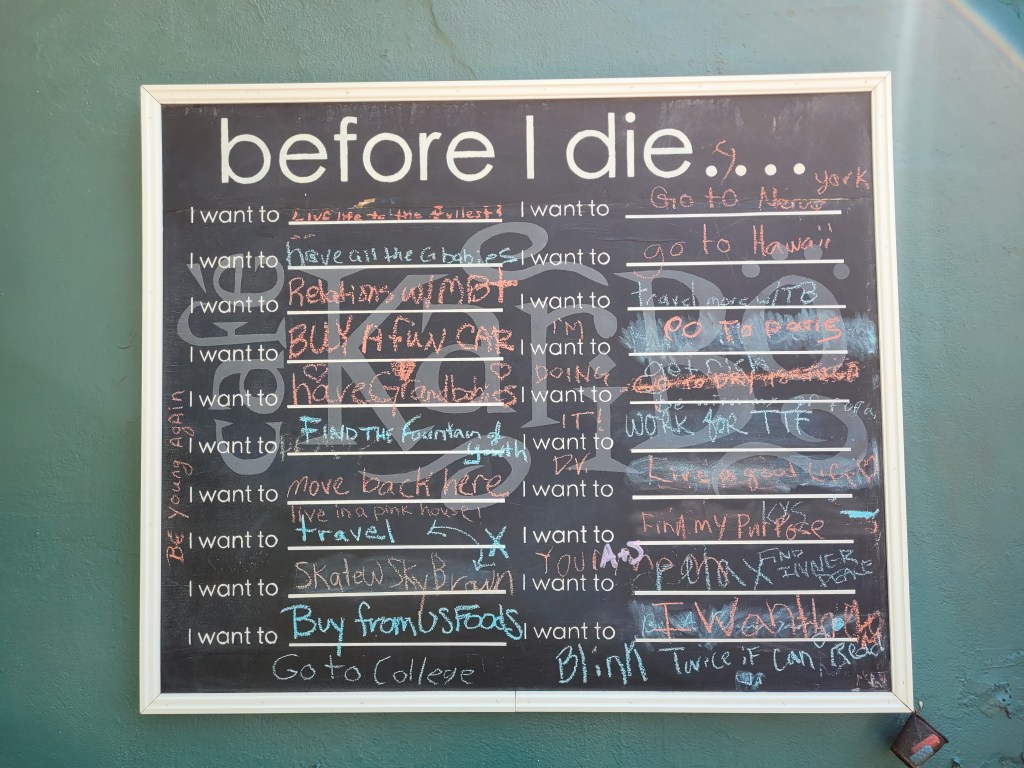 before I die....
I want to Live life to the fullest!
I want to have all the Gbabies
I want to Relations w/MBT
I want to BUY A FUN CAR
I want to have Grandbabies
I want to FIND THE Fountain of youth
I want to move back here
live in a pink house!
I want to travel
I want to Skate w Sky Brown
I want to Buy from US FOODS
Go to College
BE YOUNG AGAIN
I want to Go to New york
I want to go to Hawaii
I want to Travel more w/TB
I want to GO TO Paris
I want to get rich
I want to WORK for TTF
I want to Live a good life
I want to Find my Purpose
I want to FIND INNER PEACE
I want to I Want
I'M DOING IT!
Blink Twice if can Read
café Karpo